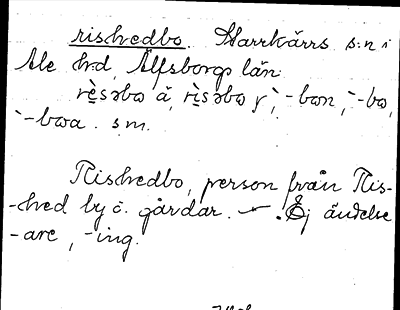 rishedbo. Starrkärrs s:n i
Ale hd, Älfsborgs län.
rèsəbo ä, rìsəbo y, -bon, -bo,
-boa. s.m.
Rishedbo, person från Ris-
-hed by o. gårdar. Ej ändelse
-are, -ing.